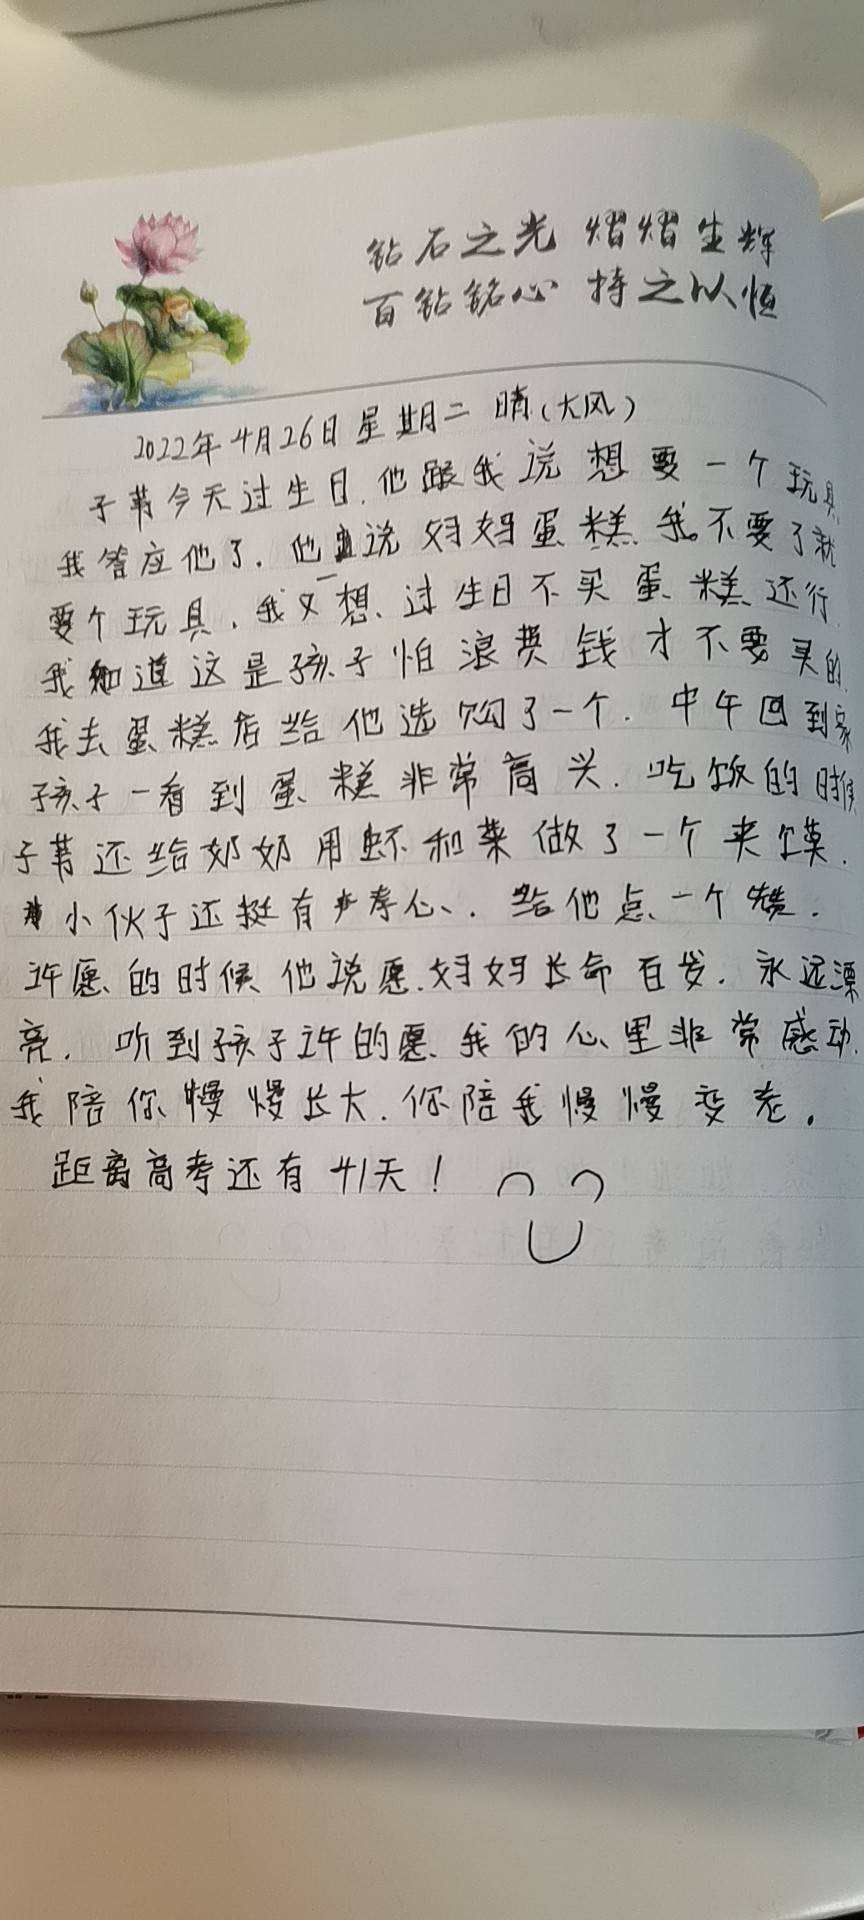 钻石之光 熠熠生辉
百钻铭心 持之以恒
2022年4月26日星期二 晴(大风)
子苇今天过生日.他跟我说想要一个玩具
我答应他了.他说妈妈蛋糕我不要了就
要个玩具.我又一想.过生日不买蛋糕还行.
我知道这是孩子怕浪费钱才不要买的.
我去蛋糕店给他选购了一个.中午回到家
孩子一看到蛋糕非常高兴.吃饭的时候
子苇还给奶奶用虾和菜做了一个夹馍.
小伙子还挺有孝心.给他点一个赞.
许愿的时候他说愿妈妈长命百岁.永远漂
亮.听到孩子许的愿.我的心里非常感动.
我陪你慢慢长大.你陪我慢慢变老.
距离高考还有41天!